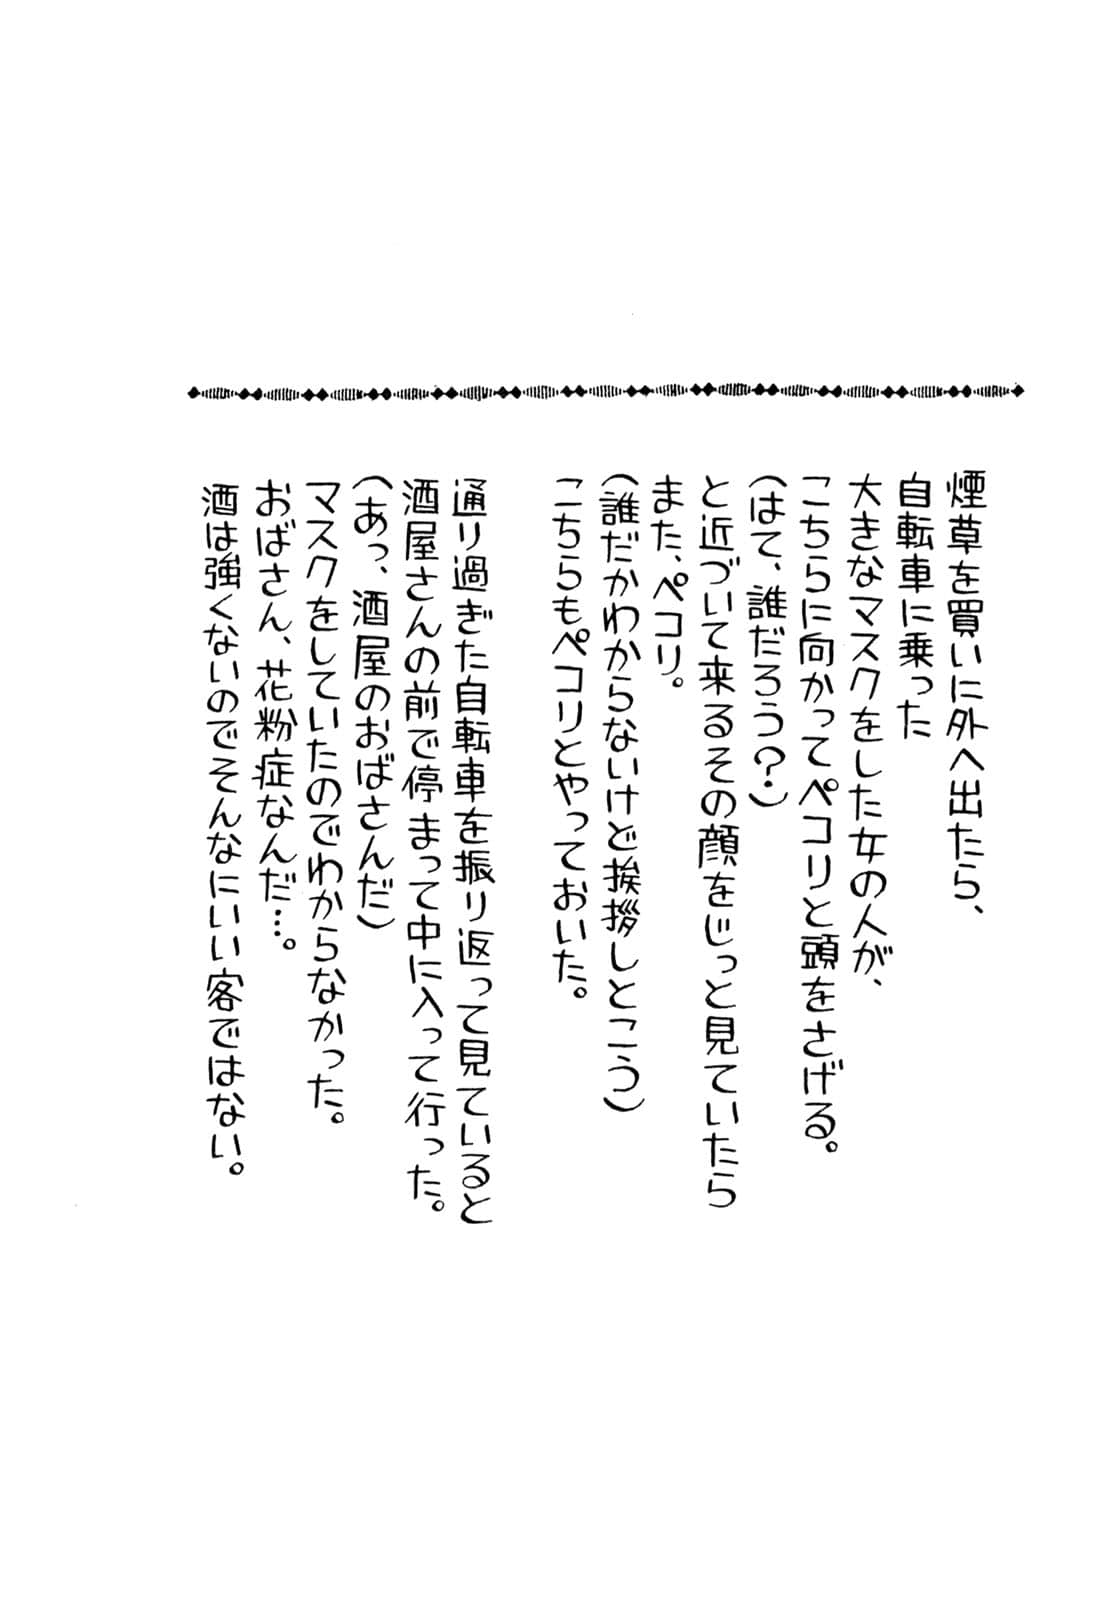 煙草を買いに外へ出たら、
自転車に乗った
大きなマスクをした女の人が、
こちらに向かってペコリと頭をさげる。
(はて、誰だろう?)
と近づいて来るその顔をじっと見ていたら
また、ペコリ。
(誰だかわからないけど挨拶しとこう)
こちらもペコリとやっておいた。
通り過ぎた自転車を振り返って見ていると
酒屋さんの前で停まって中に入って行った。
(あっ、酒屋のおばさんだ)
マスクをしていたのでわからなかった。
おばさん、花粉症なんだ…。
酒は強くないのでそんなにいい客ではない。